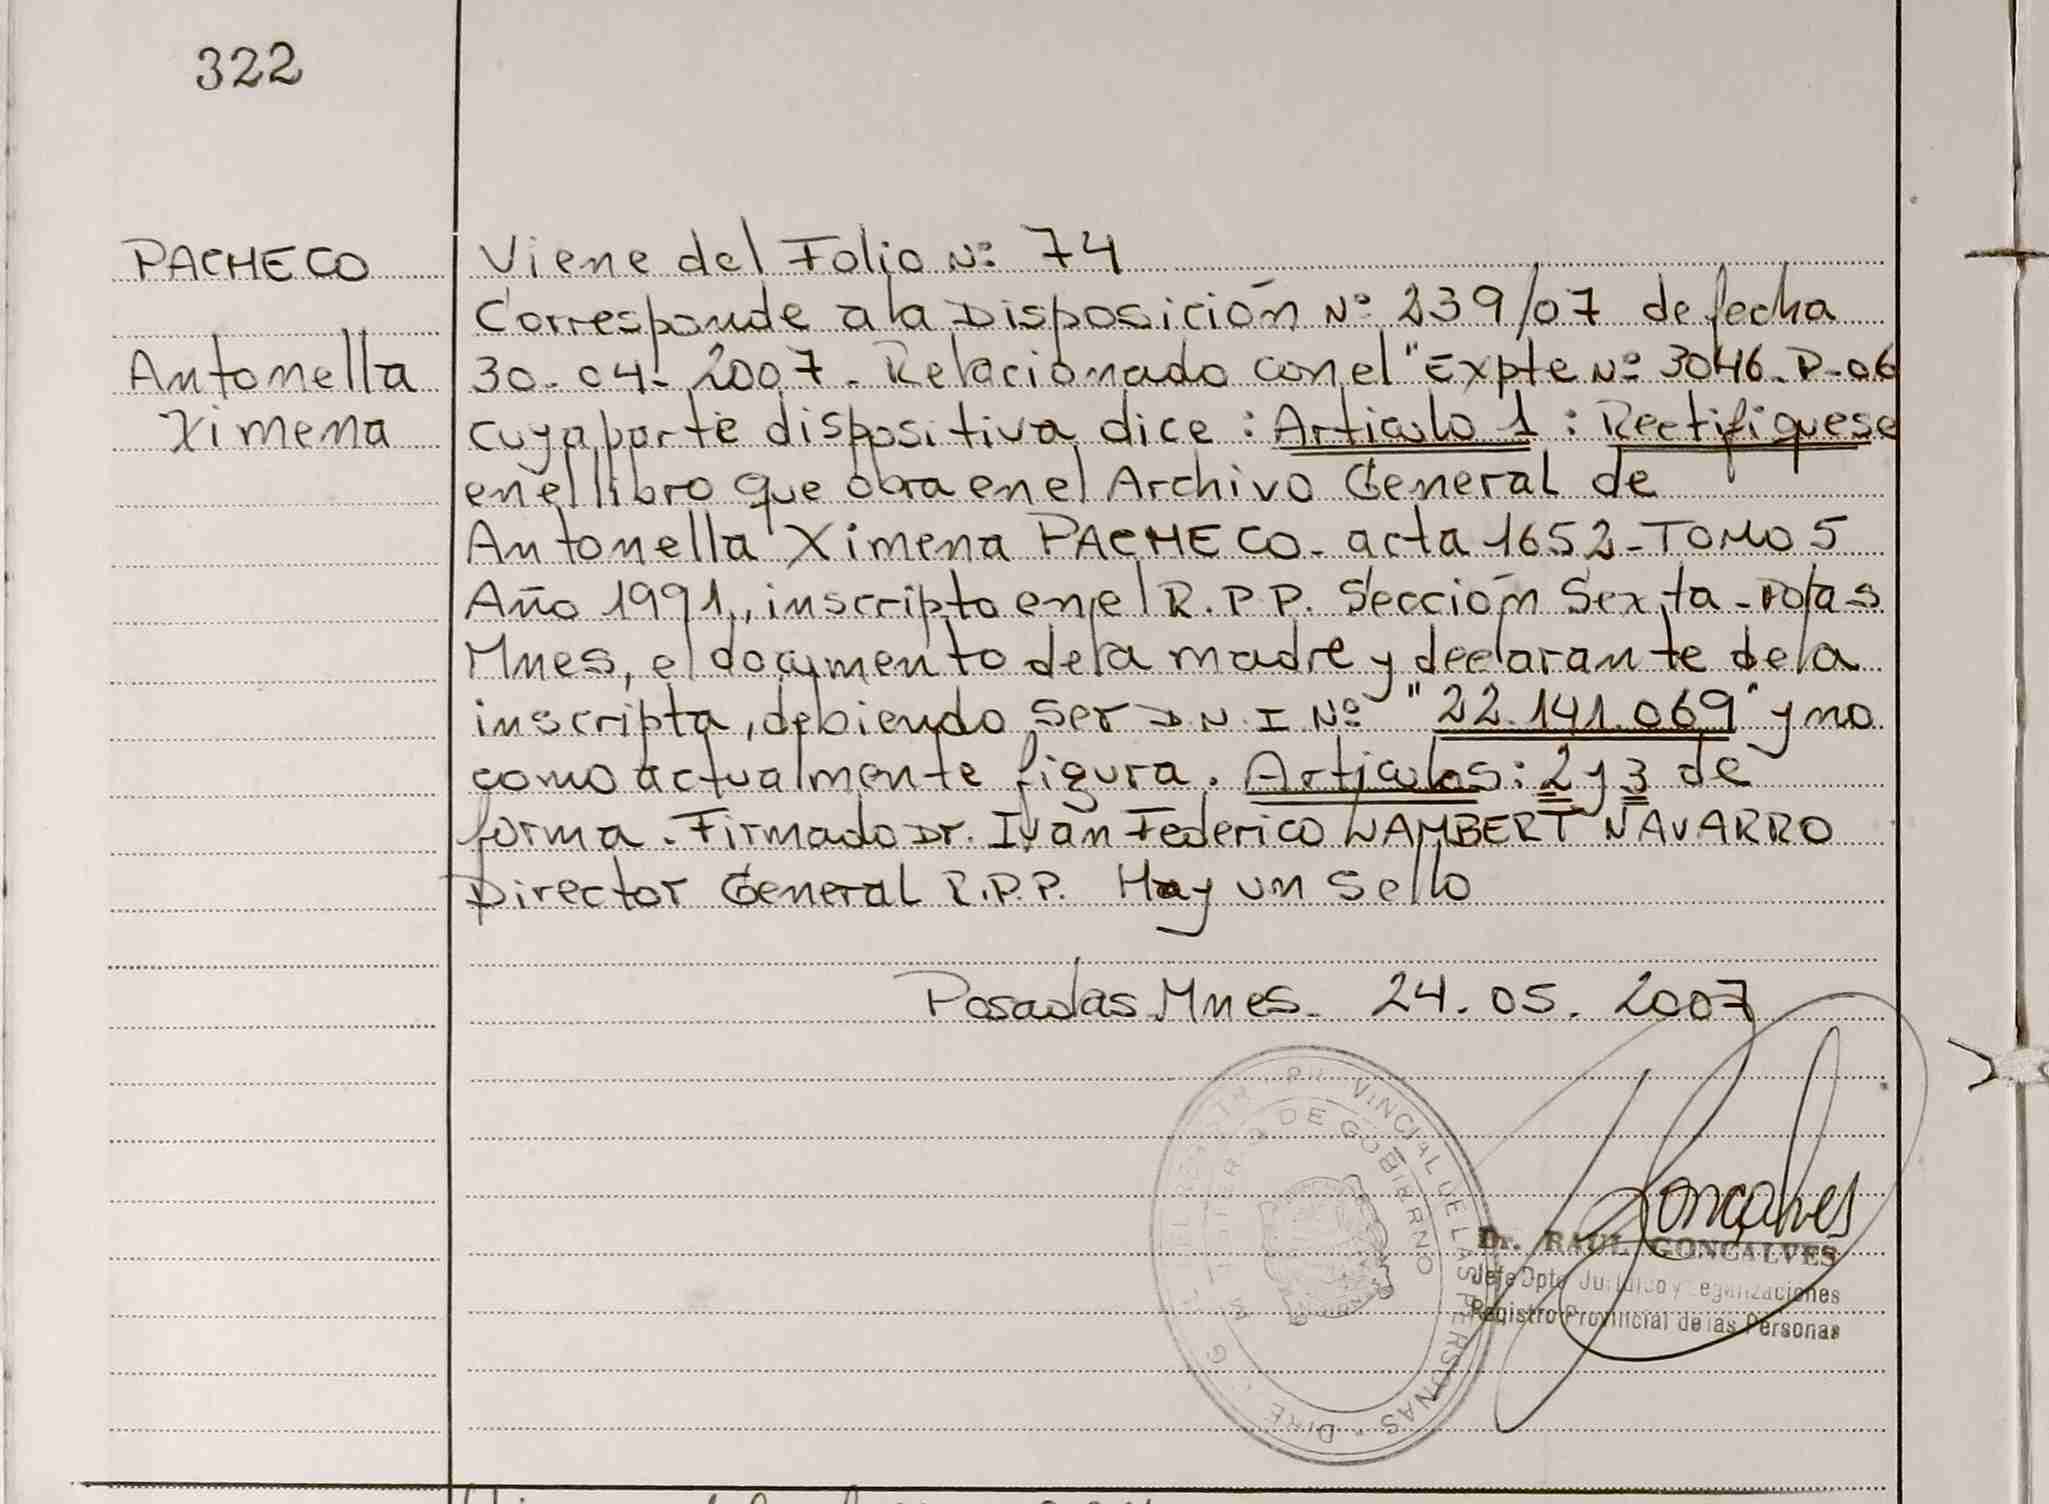 322
PACHECO
Antonella
Ximena
Viene del Folio Nº 74
Corresponde a la Disposición Nº 239/07 de fecha
30-04-2007. Relacionado con el "Expte Nº 3046-P-06
cuya parte dispositiva dice: Articulo 1: Rectifiquese
en el libro que obra en el Archivo General de
Antonella Ximena PACHECO- acta 1652-TOMO 5
Año 1991, inscripto en el R.P.P. Sección Sexta-Pdas
Mnes, el documento de la madre y declarante de la
inscripta, debiendo ser D.N.I Nº "22.141.069" y no
como actualmente figura. Articulos: 2 y 3 de
forma. Firmado Dr. Iván Federico WAMBERT NAVARRO
Director General R.P.P. Hay un sello
Posadas Mnes- 24.05.2007
VINCIAL DE LAS PERSONAS - DIRE
DE GOBIERNO
Goncalves
Dr. RAUL GONCALVES
Jefe Dpto Juridico y Legalizaciones
Registro Provincial de las Personas